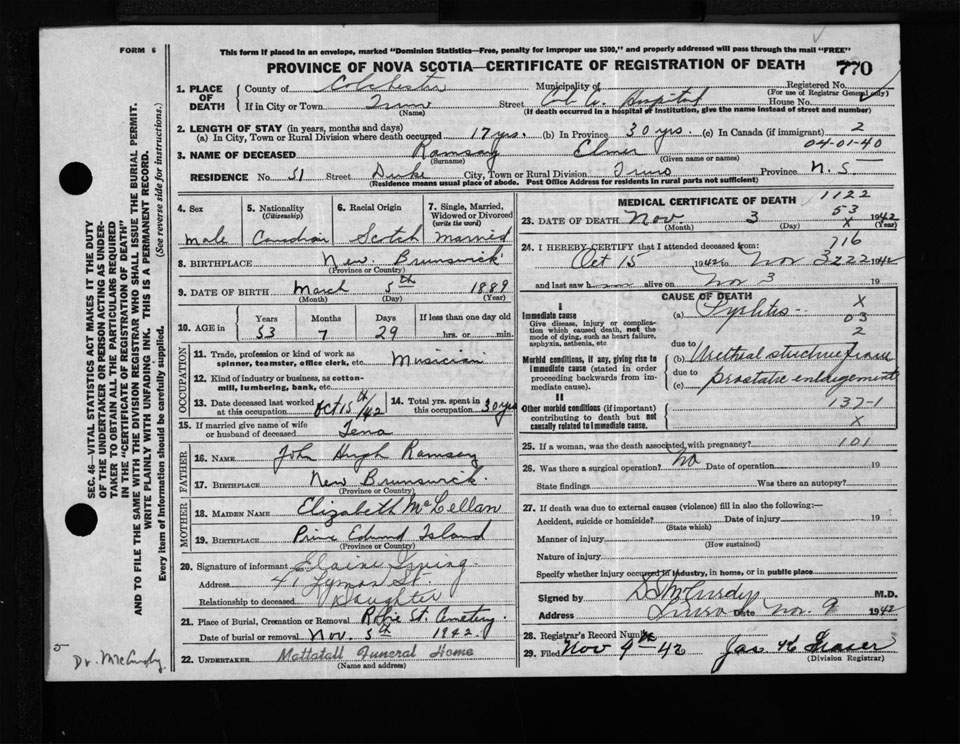 FORM 6
This form if placed in an envelope, marked "Dominion Statistics—Free, penalty for improper use $300," and properly addressed will pass through the mail "FREE"
PROVINCE OF NOVA SCOTIA—CERTIFICATE OF REGISTRATION OF DEATH 770
1. PLACE OF DEATH
County of Colchester Municipality of Registered No.
(For use of Registrar General only)
If in City or Town Truro Street Hospital House No.
(Name) (If death occurred in a hospital or institution, give the name instead of street and number)
2. LENGTH OF STAY (in years, months and days)
(a) In City, Town or Rural Division where death occurred 17 yrs. (b) In Province 30 yrs. (c) In Canada (if immigrant) 2
04-01-40
3. NAME OF DECEASED Ramsay Elmer
(Surname) (Given name or names)
RESIDENCE No. 31 Street Duke City, Town or Rural Division Truro Province N. S.
(Residence means usual place of abode. Post Office Address for residents in rural parts not sufficient)
4. Sex
Male
5. Nationality
(Citizenship)
Canadian
6. Racial Origin
Scotch
7. Single, Married, Widowed or Divorced
(write the word)
Married
8. BIRTHPLACE New Brunswick
(Province or Country)
9. DATE OF BIRTH March 5th 1889
(Month) (Day) (Year)
10. AGE in Years Months Days If less than one day old
53 7 29 hrs. or min.
OCCUPATION
11. Trade, profession or kind of work as spinner, teamster, office clerk, etc. Musician
12. Kind of industry or business, as cotton-mill, lumbering, bank, etc.
13. Date deceased last worked at this occupation Oct 15th/42
14. Total yrs. spent in this occupation 30 yrs
15. If married give name of wife or husband of deceased Tena
FATHER
16. NAME John Hugh Ramsay
17. BIRTHPLACE New Brunswick
(Province or Country)
MOTHER
18. MAIDEN NAME Elizabeth McLellan
19. BIRTHPLACE Prince Edward Island
(Province or Country)
20. Signature of informant Elaine Irving
Address 41 Lyman St.
Relationship to deceased Daughter
21. Place of Burial, Cremation or Removal Robie St. Cemetery
Date of burial or removal Nov. 5th 1942
22. UNDERTAKER Mattatall Funeral Home
(Name and address)
MEDICAL CERTIFICATE OF DEATH
1122
53
23. DATE OF DEATH Nov. 3 1942
(Month) (Day) X (Year)
716
24. I HEREBY CERTIFY that I attended deceased from:
Oct 15 1942 to Nov 3 1942
222
and last saw him alive on Nov 3 19
CAUSE OF DEATH
I
Immediate cause
Give disease, injury or complication which caused death, not the mode of dying, such as heart failure, asphyxia, asthenia, etc
(a) Pyelitis
X
03
2
due to
Morbid conditions, if any, giving rise to immediate cause (stated in order proceeding backwards from immediate cause).
(b) Urethral stricture from
due to
(c) prostatic enlargement
II
Other morbid conditions (if important) contributing to death but not causally related to immediate cause.
137-1
X
101
25. If a woman, was the death associated with pregnancy?
26. Was there a surgical operation? No Date of operation 19
State findings Was there an autopsy?
27. If death was due to external causes (violence) fill in also the following:—
Accident, suicide or homicide? Date of injury 19
(State which)
Manner of injury
(How sustained)
Nature of injury
Specify whether injury occurred in industry, in home, or in public place
Signed by D. S. McCurdy M.D.
Address Truro Date Nov. 9 1942
28. Registrar's Record Number
29. Filed Nov 9th 42
(Division Registrar)
SEC. 46—VITAL STATISTICS ACT MAKES IT THE DUTY
OF THE UNDERTAKER OR PERSON ACTING AS UNDER-
TAKER TO OBTAIN ALL THE PARTICULARS REQUIRED
IN THE "CERTIFICATE OF REGISTRATION OF DEATH"
AND TO FILE THE SAME WITH THE DIVISION REGISTRAR WHO SHALL ISSUE THE BURIAL PERMIT.
WRITE PLAINLY WITH UNFADING INK. THIS IS A PERMANENT RECORD.
Every item of information should be carefully supplied.
(See reverse side for instructions.)
5
Dr. McCurdy.